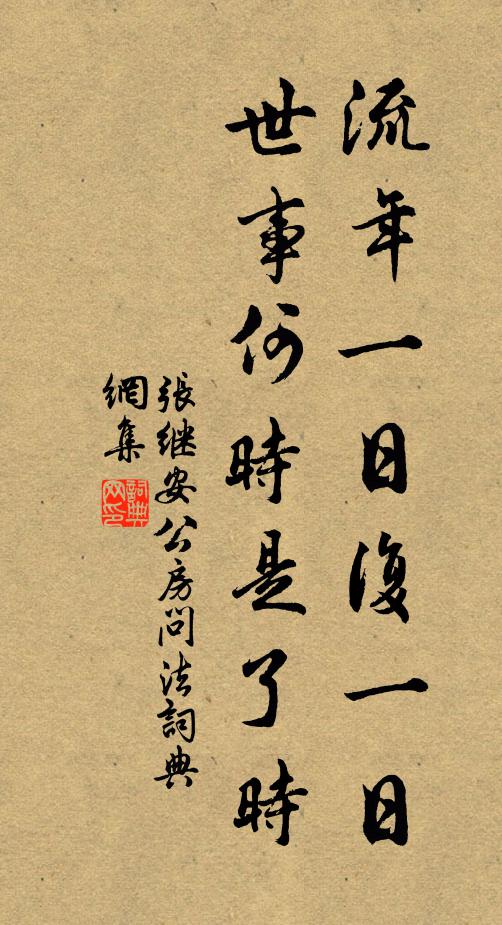 流年一日復一日
世事何時是了時
張继安公房問法詞典
網集
詞典
网印